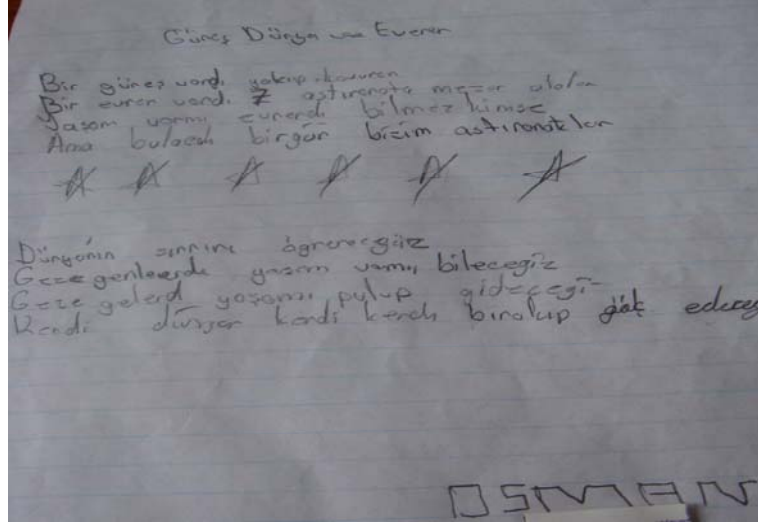 Güneş Dünya ve Everen
Bir güneş vardı yakıp kavuren
Bir evren vardı 7 astıronota mezar ololan
Yaşam varmı evrende bilmez kimse
Ama bulacak birgün bizim astıronotlar
Dünyanın sınrını ögrenecegiiz
Gezegenleerde yaşam vamı, bilecegiz
Gezegelerd yaşamı pulup gidecegi
Kendi dünyan kendi kendi bıralup göt edeceg
OSMAN